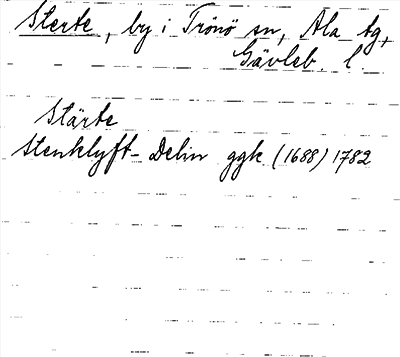 Sterte, by i Trönö sn, Ala tg,
Gävleb. l.
Stärte
Stenklyft- Delin ggk (1688) 1782